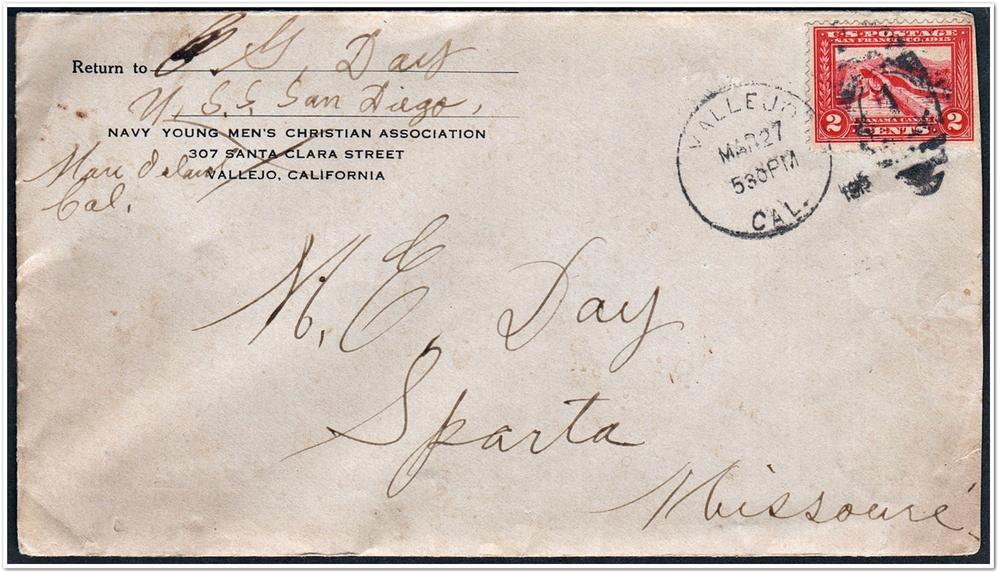 Return to C. G. Day
U.S.S. San Diego,
NAVY YOUNG MEN'S CHRISTIAN ASSOCIATION
307 SANTA CLARA STREET
VALLEJO, CALIFORNIA
Mare Island
Cal.
U.S. POSTAGE
SAN FRANCISCO, 1915
PANAMA CANAL
2 CENTS 2
VALLEJO
MAR 27
530PM
CAL.
1915
M. E. Day
Sparta
Missouri